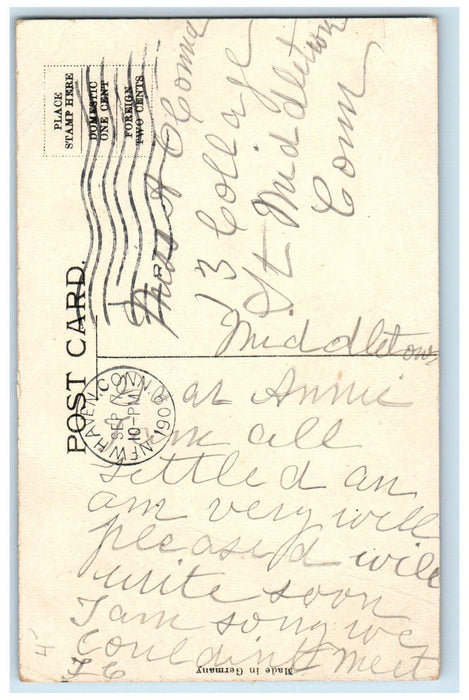 POST CARD.
PLACE
STAMP HERE
DOMESTIC
ONE CENT
FOREIGN
TWO CENTS
NEW HAVEN, CONN.
SEP
10-PM
190
Miss A O'Connor
13 College
St Middletown
Conn
Middletown
Dear Annie
am all
settled an
am very will
pleased will
write soon
I am sorry we
couldint meet
Made in Germany